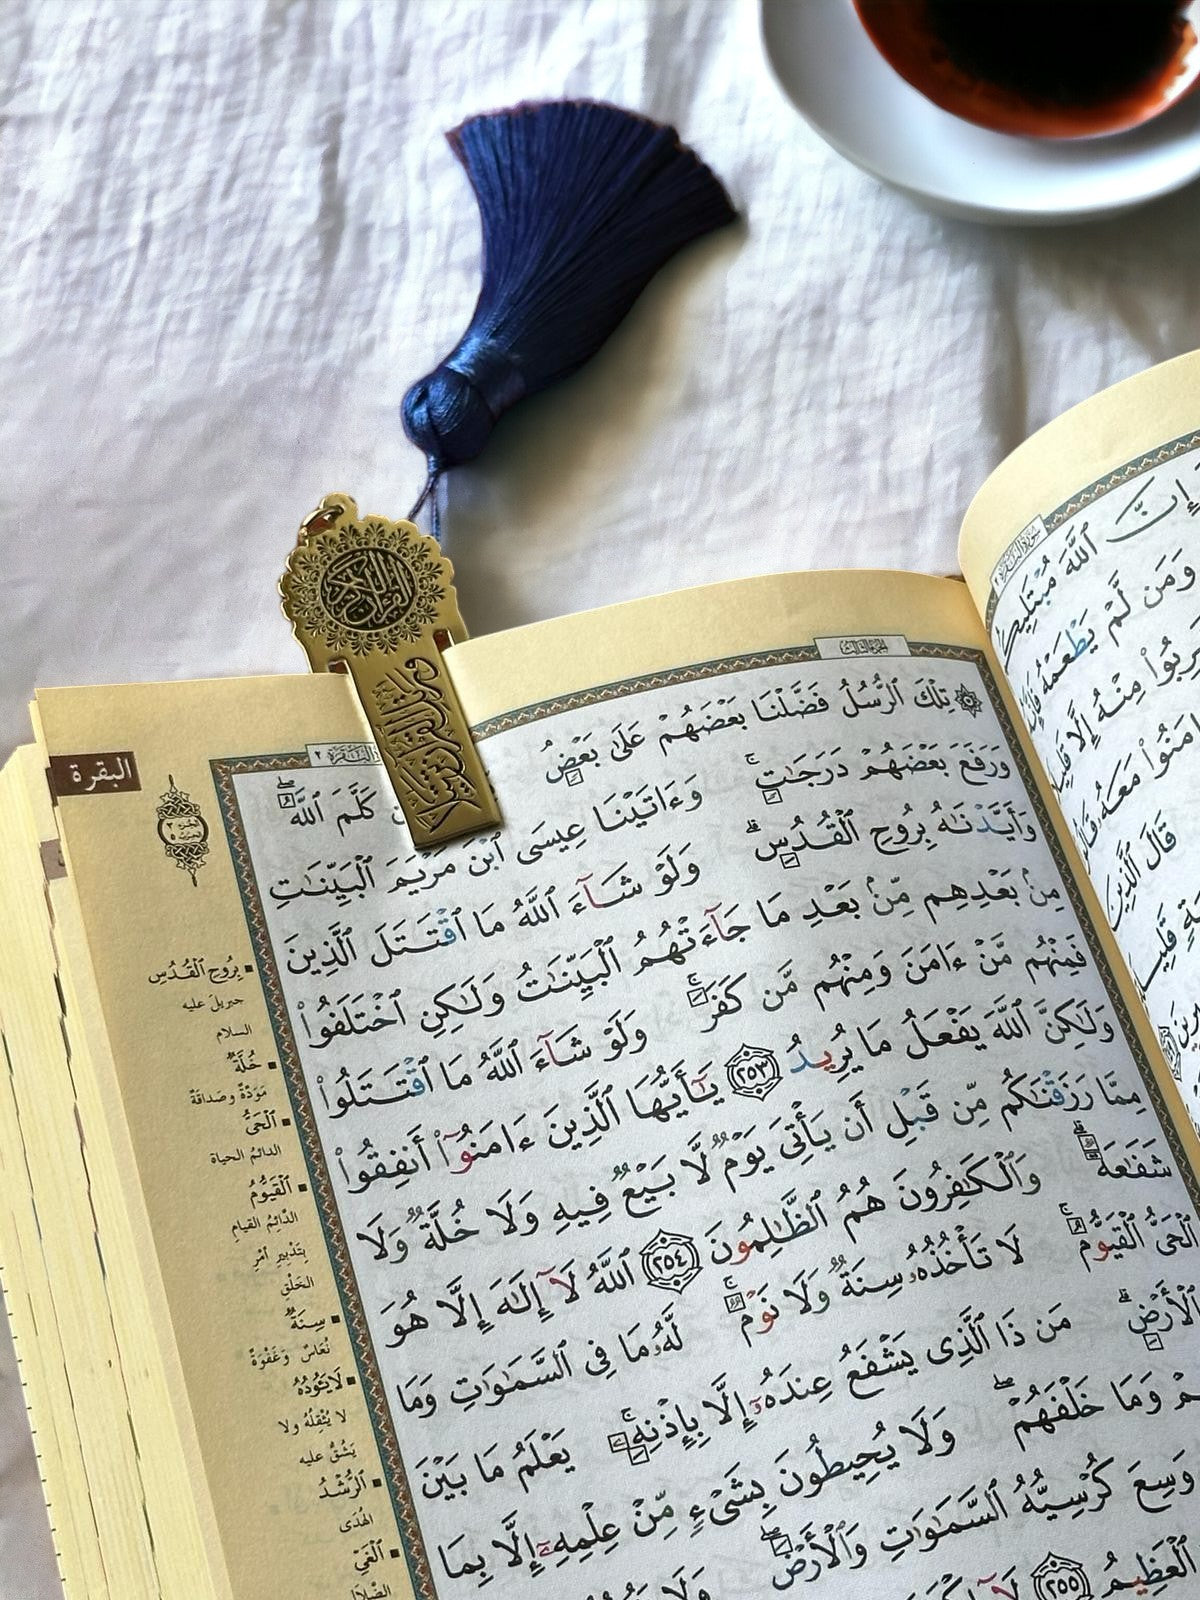 القرآن الكريم
ورتل القرآن ترتيلا
البقرة
الجزء ٣
الحزب ٥
الجزء الثالث
تِلْكَ ٱلرُّسُلُ فَضَّلْنَا بَعْضَهُمْ عَلَىٰ بَعْضٍ
كَلَّمَ ٱللَّهُ
وَرَفَعَ بَعْضَهُمْ دَرَجَـٰتٍ وَءَاتَيْنَا عِيسَى ٱبْنَ مَرْيَمَ ٱلْبَيِّنَـٰتِ
وَأَيَّدْنَـٰهُ بِرُوحِ ٱلْقُدُسِ وَلَوْ شَآءَ ٱللَّهُ مَا ٱقْتَتَلَ ٱلَّذِينَ
مِنۢ بَعْدِهِم مِّنۢ بَعْدِ مَا جَآءَتْهُمُ ٱلْبَيِّنَـٰتُ وَلَـٰكِنِ ٱخْتَلَفُوا۟
فَمِنْهُم مَّنْ ءَامَنَ وَمِنْهُم مَّن كَفَرَ وَلَوْ شَآءَ ٱللَّهُ مَا ٱقْتَتَلُوا۟
وَلَـٰكِنَّ ٱللَّهَ يَفْعَلُ مَا يُرِيدُ ٢٥٣ يَـٰٓأَيُّهَا ٱلَّذِينَ ءَامَنُوٓا۟ أَنفِقُوا۟
مِمَّا رَزَقْنَـٰكُم مِّن قَبْلِ أَن يَأْتِىَ يَوْمٌ لَّا بَيْعٌ فِيهِ وَلَا خُلَّةٌ وَلَا
شَفَـٰعَةٌ وَٱلْكَـٰفِرُونَ هُمُ ٱلظَّـٰلِمُونَ ٢٥٤ ٱللَّهُ لَآ إِلَـٰهَ إِلَّا هُوَ
ٱلْحَىُّ ٱلْقَيُّومُ لَا تَأْخُذُهُۥ سِنَةٌ وَلَا نَوْمٌ لَّهُۥ مَا فِى ٱلسَّمَـٰوَٰتِ وَمَا
ٱلْأَرْضِ مَن ذَا ٱلَّذِى يَشْفَعُ عِندَهُۥٓ إِلَّا بِإِذْنِهِۦ يَعْلَمُ مَا بَيْنَ
وَمَا خَلْفَهُمْ وَلَا يُحِيطُونَ بِشَىْءٍ مِّنْ عِلْمِهِۦٓ إِلَّا بِمَا
وَسِعَ كُرْسِيُّهُ ٱلسَّمَـٰوَٰتِ وَٱلْأَرْضَ وَلَا
ٱلْعَظِيمُ ٢٥٥ لَآ
بِرُوحِ ٱلْقُدُسِ
جبريلَ عليه
السلام
خُلَّةٌ
مَوَدَّةٌ وصداقةٌ
ٱلْحَىُّ
الدائمُ الحياة
ٱلْقَيُّومُ
الدَّائِمُ القيام
بِتَدْبِيرِ أمْرِ
الخَلْقِ
سِنَةٌ
نُعَاسٌ وَغَفْوَةٌ
لَا يَـُٔودُهُۥ
لا يُثْقِلُهُ ولا
يَشُقُّ عليه
ٱلرُّشْدُ
الهُدَى
ٱلْغَىِّ
الضَّلَالِ
سورة البقرة ٢
إِنَّ
ٱللَّهَ مُبْتَلِيكُم
وَمَن لَّمْ يَطْعَمْهُ
مِنْهُ إِلَّا قَلِيلًا
مَعَهُۥ قَالُوا۟
قَالَ ٱلَّذِينَ